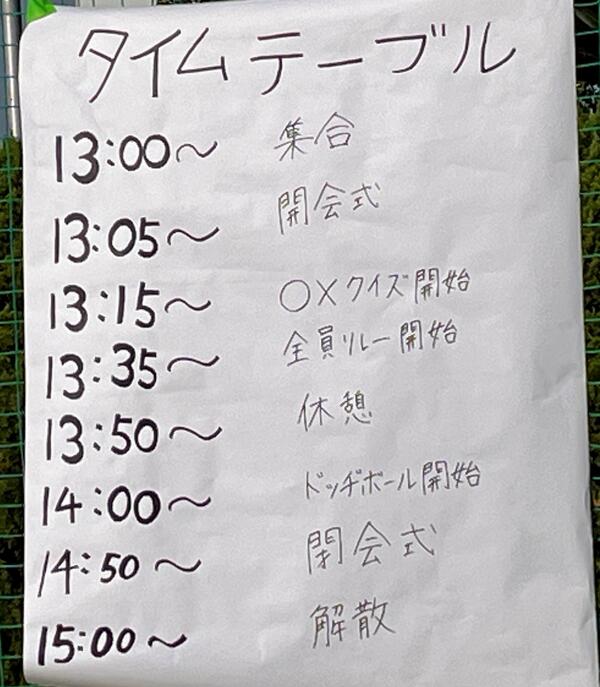 タイムテーブル
13:00〜 集合
13:05〜 開会式
13:15〜 ○×クイズ開始
13:35〜 全員リレー開始
13:50〜 休憩
14:00〜 ドッヂボール開始
14:50〜 閉会式
15:00〜 解散